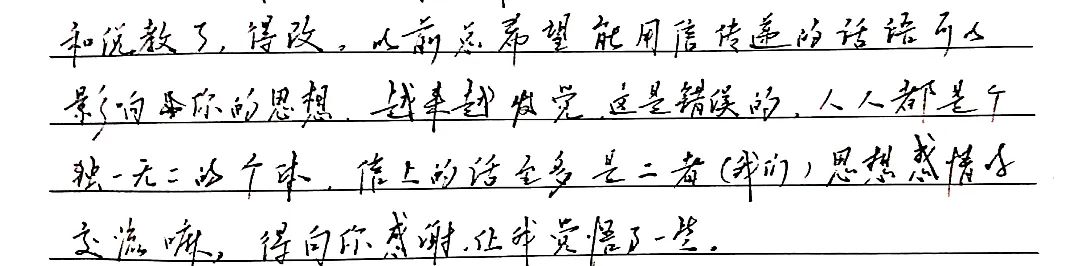 和说教了，得改。以前总希望能用信传递的话语可以
影响你的思想，越来越发觉，这是错误的，人人都是个
独一无二的个体，信上的话至多是二者（我们）思想感情的
交流嘛，得向你感谢，让我觉悟了一些。